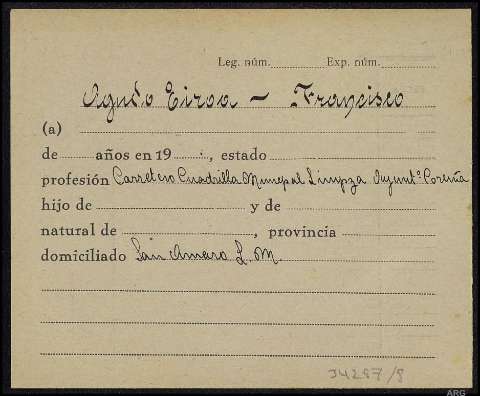 Leg. núm. Exp. núm.
Agudo Eiroa - Francisco
(a)
de años en 19 , estado
profesión Carretero Cuadrilla Municpal Limpza Ayunt.º Coruña
hijo de y de
natural de , provincia
domiciliado San Amaro L. M.
34287/8
ARG